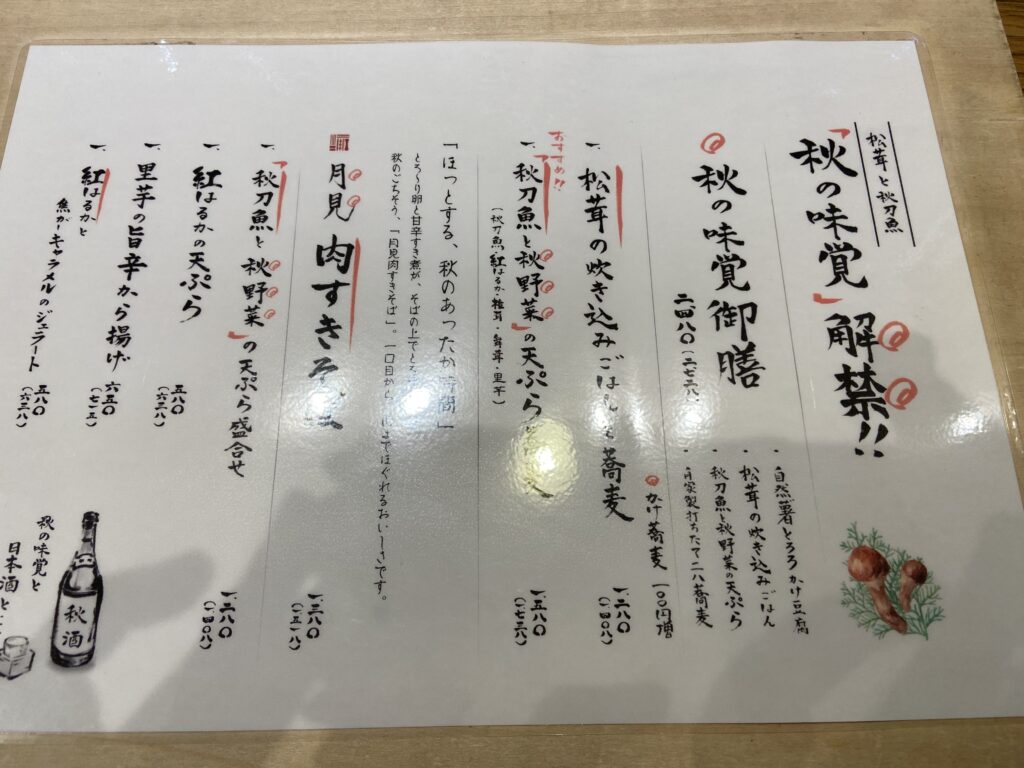 松茸と秋刀魚
「秋の味覚」解禁!!
秋の味覚御膳
二四八〇(二七二八)
・自然薯とろろかけ豆腐
・松茸の炊き込みごはん
・秋刀魚と秋野菜の天ぷら
・自家製打ちたて二八蕎麦
かけ蕎麦 一〇〇円増
一、松茸の炊き込みごはんと蕎麦
一、二八〇
(一、四〇八)
おすすめ!!
一、「秋刀魚と秋野菜」の天ぷら
(秋刀魚・紅はるか・椎茸・舞茸・里芋)
一、五八〇
(一、七三八)
「ほっとする、秋のあったか時間」
とろ〜り卵と甘辛すき煮が、そばの上でとろ
秋のごちそう、「月見肉すきそば」。一口目から、
までほぐれるおいしさです。
月見肉すきそば
一、三八〇
(一、五一八)
一、「秋刀魚と秋野菜」の天ぷら盛合せ
一、二八〇
(一、四〇八)
一、紅はるかの天ぷら
五八〇
(六三八)
一、里芋の旨辛から揚げ
六五〇
(七一五)
一、紅はるかと
焦がキャラメルのジェラート
五八〇
(六三八)
秋の味覚と
日本酒と
秋酒